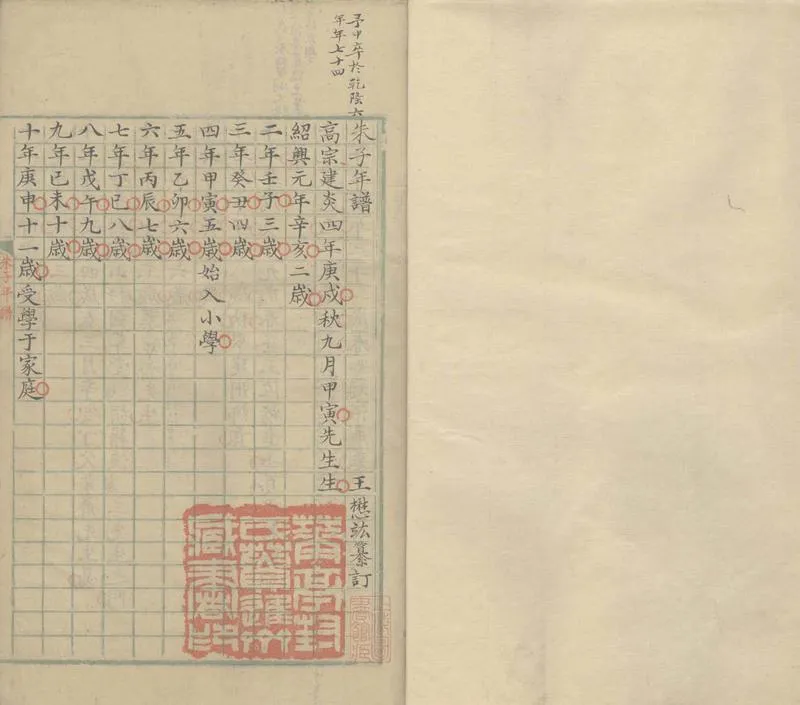 予中卒於乾隆六
年年七十四
朱子年譜 王懋竑纂訂
高宗建炎四年庚戌秋九月甲寅先生生
紹興元年辛亥二歲
二年壬子三歲
三年癸丑四歲
四年甲寅五歲始入小學
五年乙卯六歲
六年丙辰七歲
七年丁巳八歲
八年戊午九歲
九年己未十歲
十年庚申十一歲受學于家庭
朱子年譜